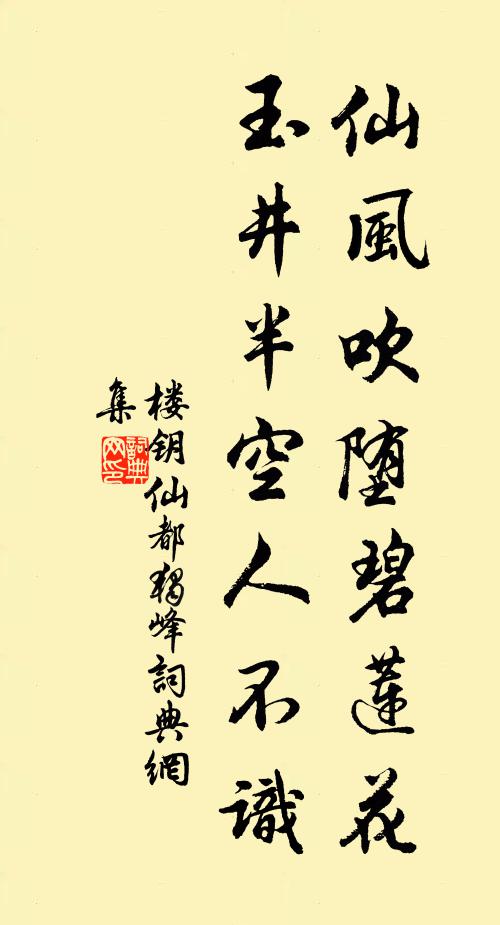 仙風吹堕碧蓮花
玉井半空人不識
楼钥仙都獨峰詞典網
集
詞典網印